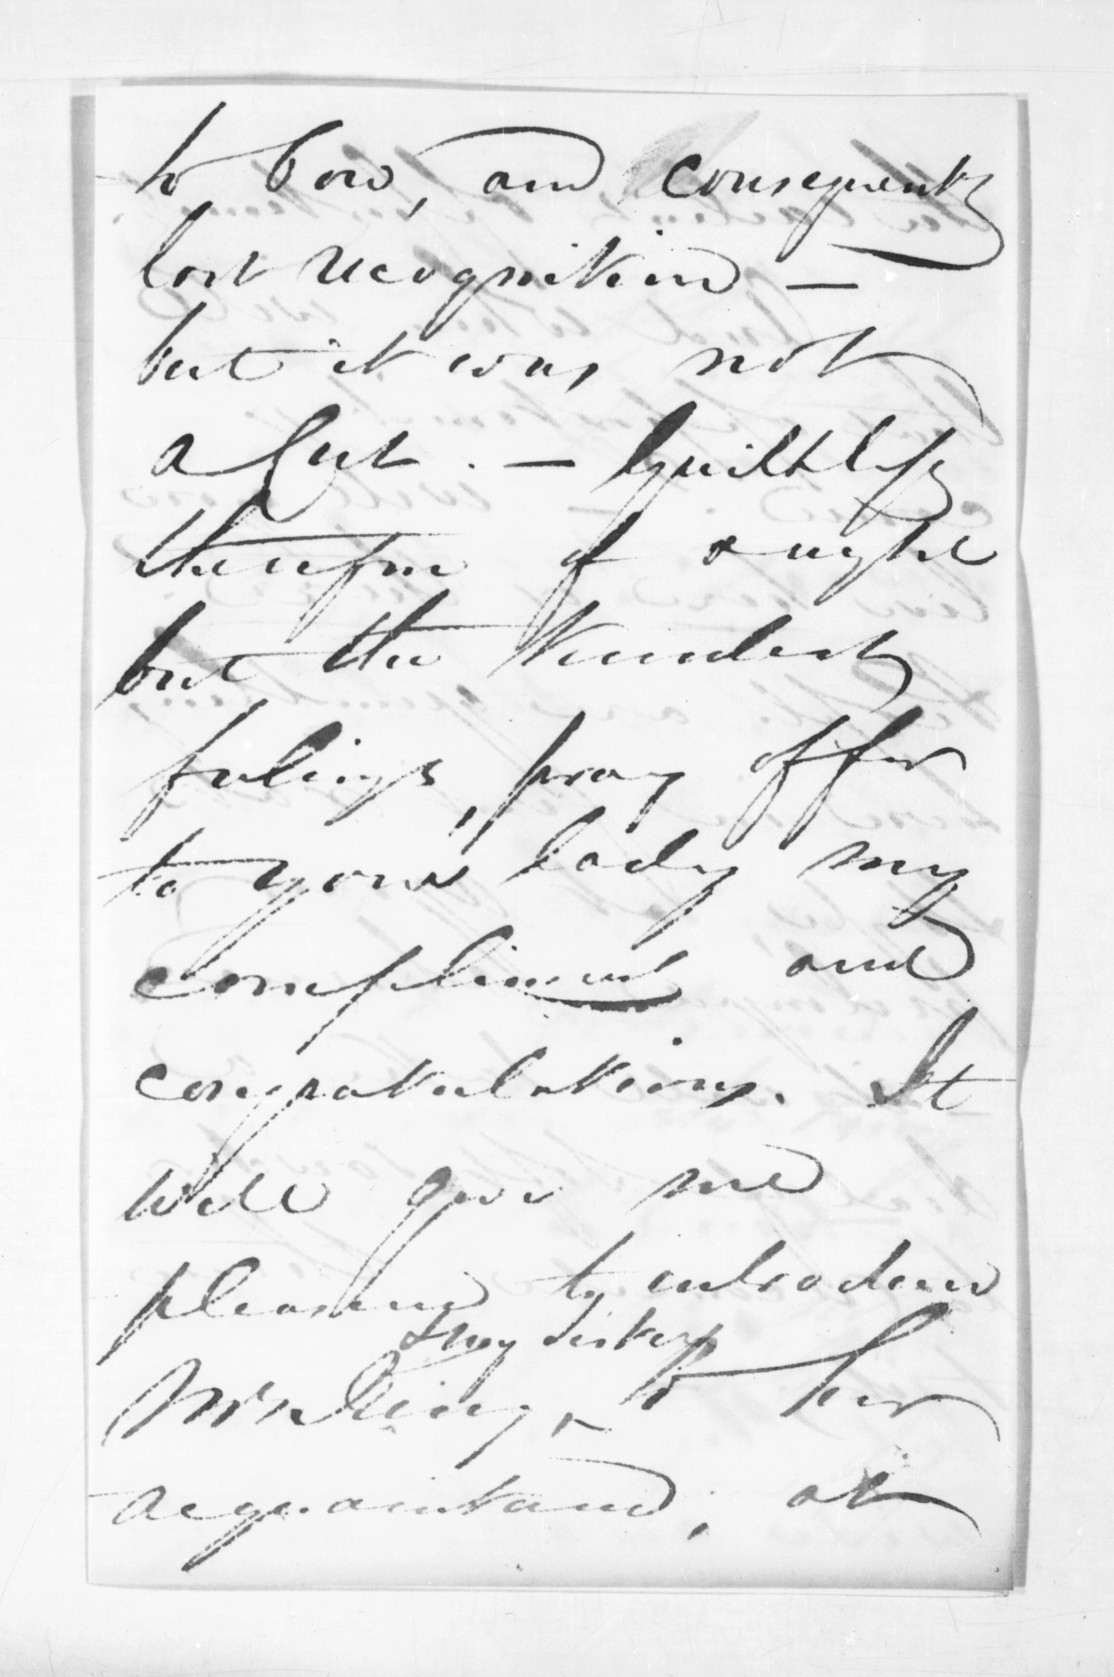 to bow, and consequently
lost recognition —
but it was not
a Cut. — Guiltless
therefore of aught
but the kindest
feelings, pray offer
to your lady my
compliments and
congratulations. It
will give me
pleasure to introduce
& my sisters
Mrs King, to her
acquaintance, at